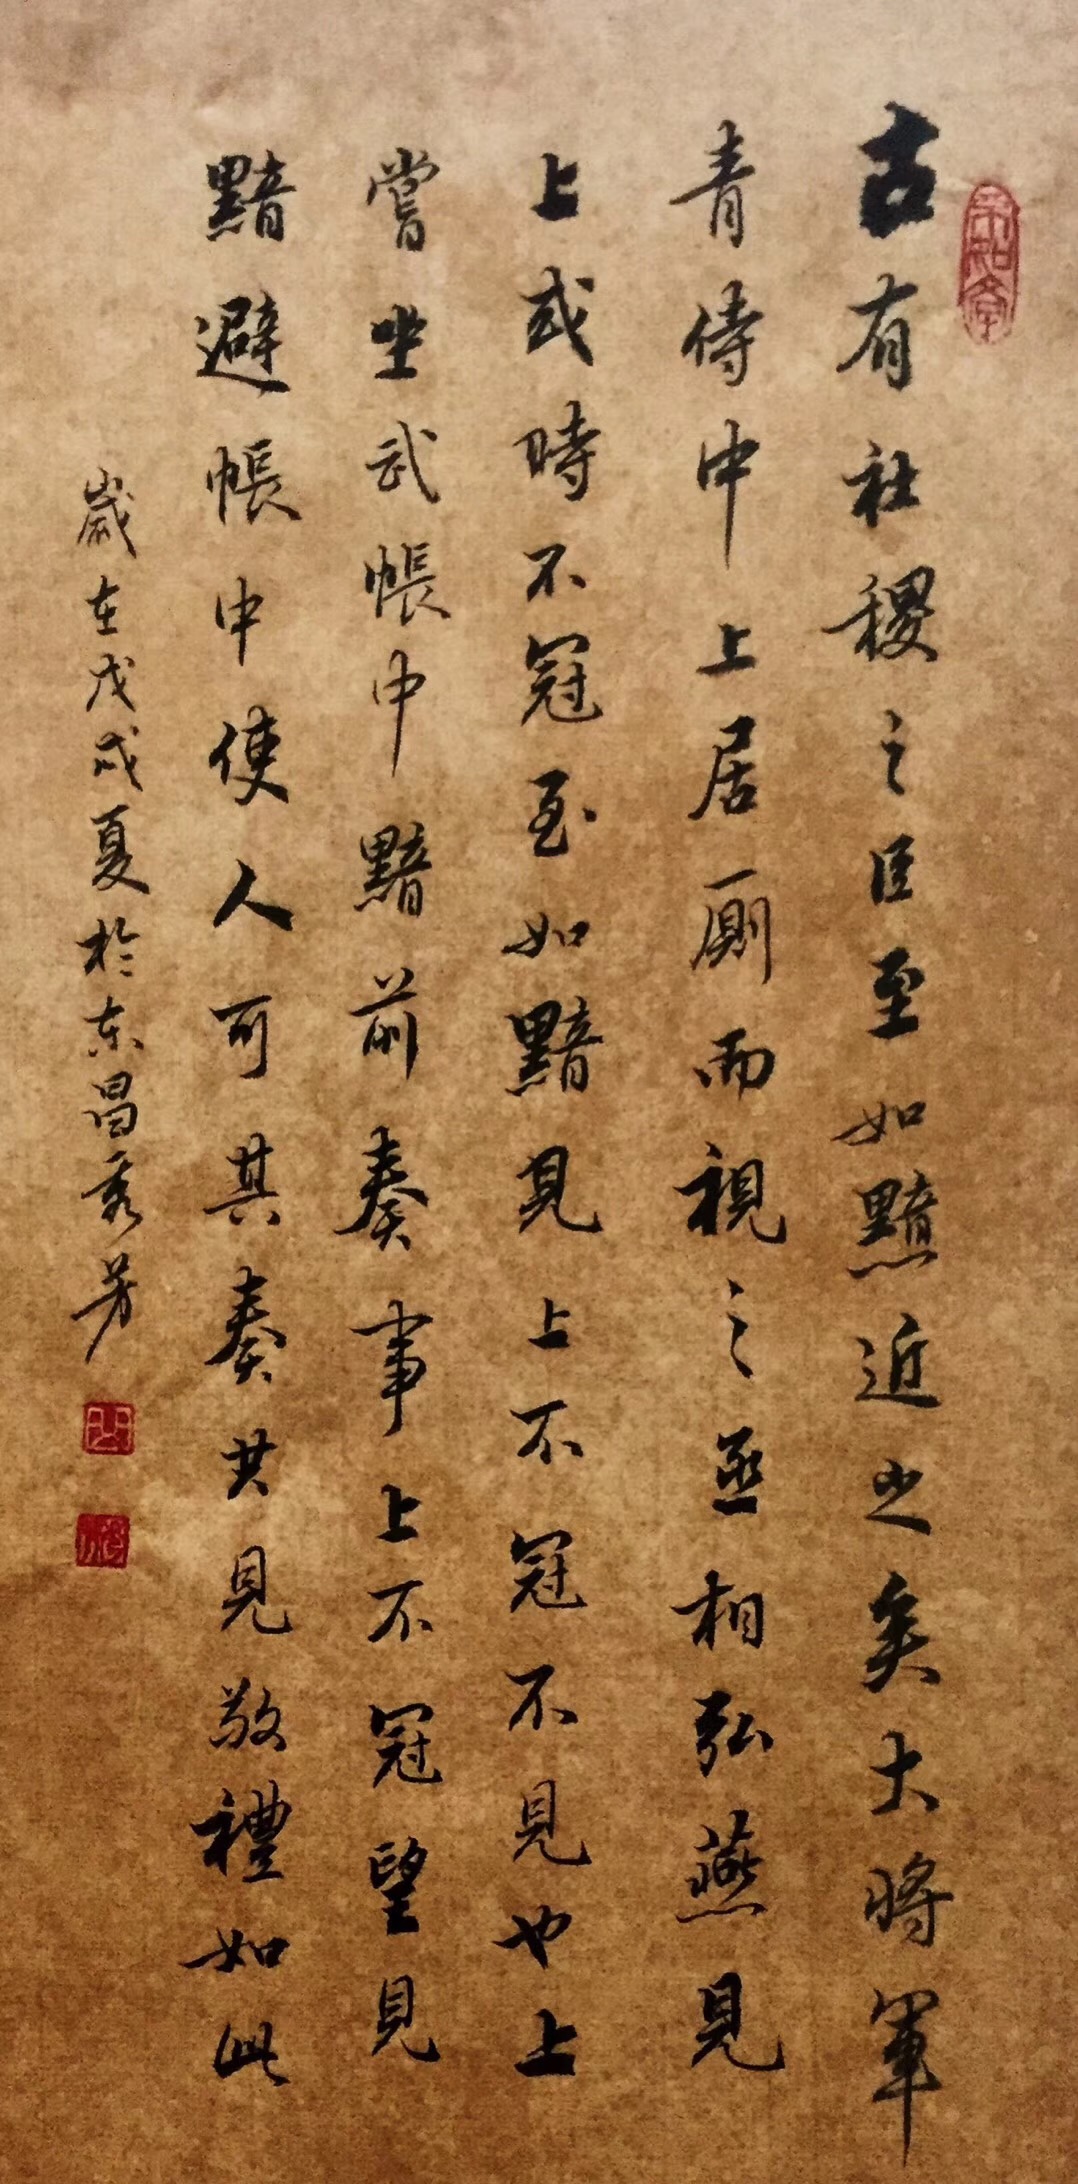 古有社稷之臣至如黯近之矣大將軍
青侍中上居厠而視之丞相弘燕見
上或時不冠至如黯見上不冠不見也上
嘗坐武帳中黯前奏事上不冠望見
黯避帳中使人可其奏其見敬禮如此
歲在戊戌夏於东昌秀芳